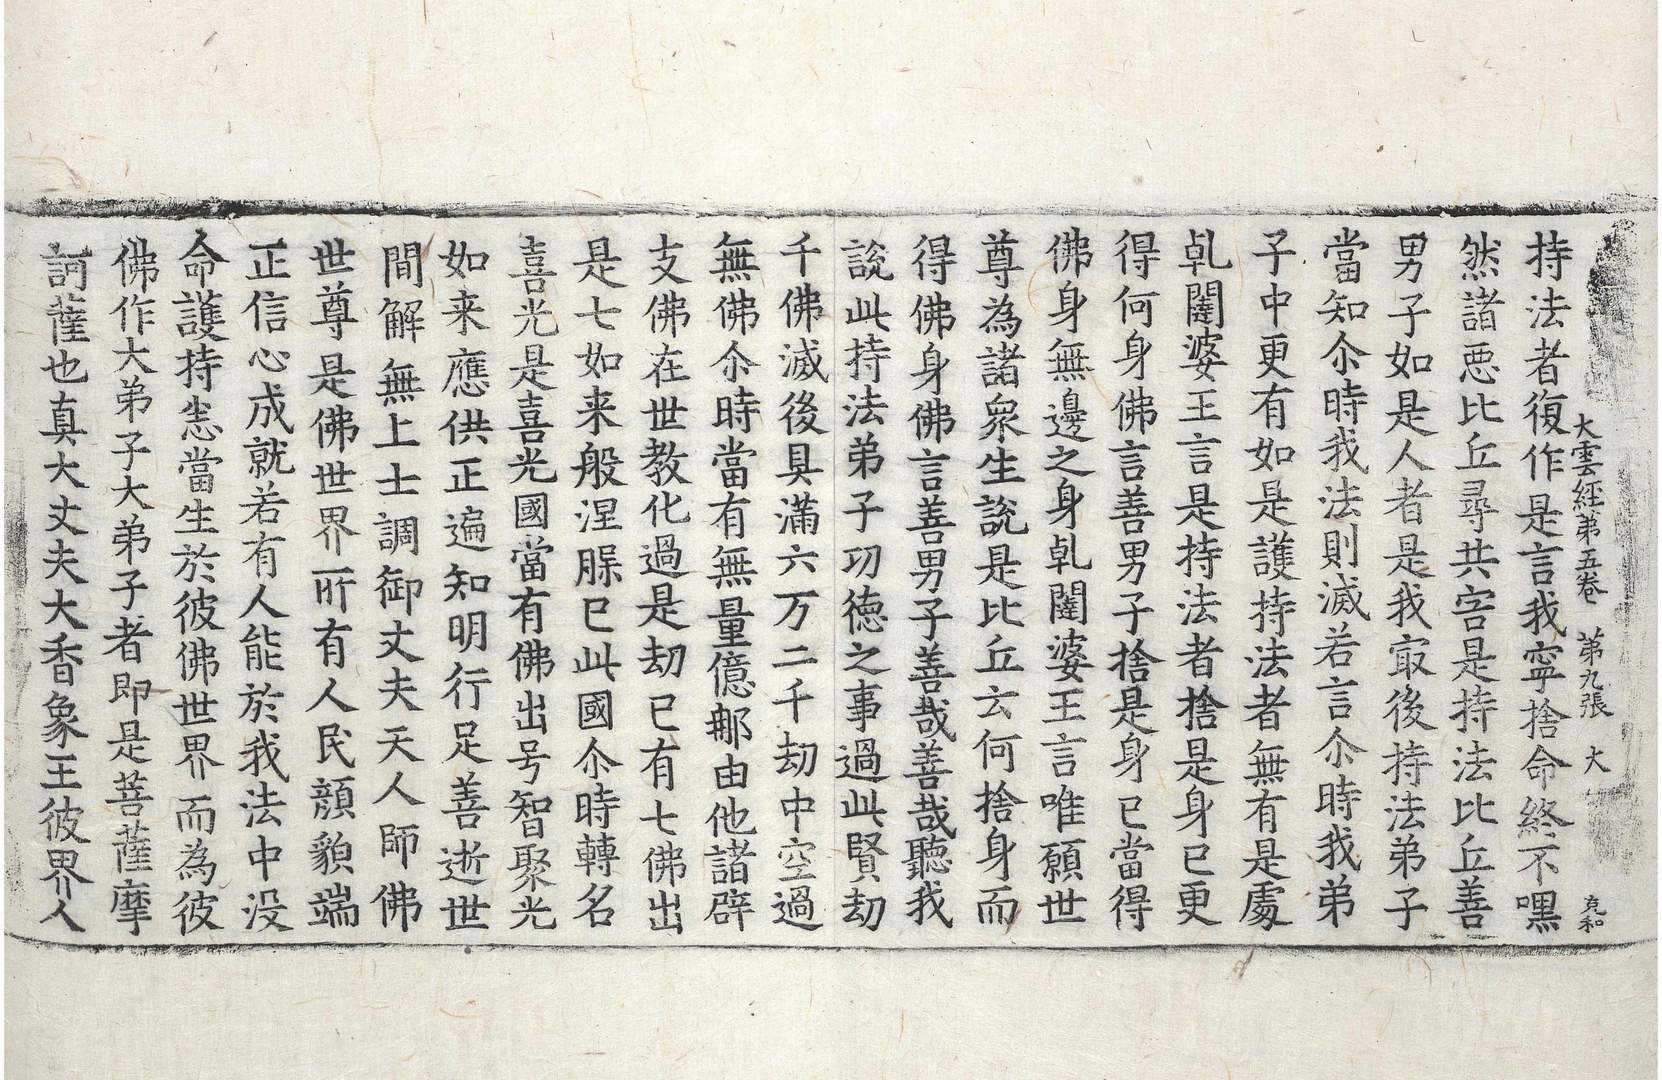 大雲經第五卷 第九張 大 克和
持法者復作是言我寧捨命終不嘿
然諸惡比丘尋共害是持法比丘善
男子如是人者是我㝡後持法弟子
當知尒時我法則滅若言尒時我弟
子中更有如是護持法者無有是處
乹闥婆王言是持法者捨是身已更
得何身佛言善男子捨是身已當得
佛身無邊之身乹闥婆王言唯願世
尊為諸衆生說是比丘云何捨身而
得佛身佛言善男子善哉善哉聽我
說此持法弟子功徳之事過此賢劫
千佛滅後具滿六万二千劫中空過
無佛尒時當有無量億那由他諸辟
支佛在世教化過是劫已有七佛出
是七如来般涅槃已此國尒時轉名
喜光是喜光國當有佛出号智聚光
如来應供正遍知明行足善逝世
間解無上士調御丈夫天人師佛
世尊是佛世界所有人民顔貌端
正信心成就若有人能於我法中没
命護持悉當生於彼佛世界而為彼
佛作大弟子大弟子者即是菩薩摩
訶薩也真大丈夫大香象王彼界人